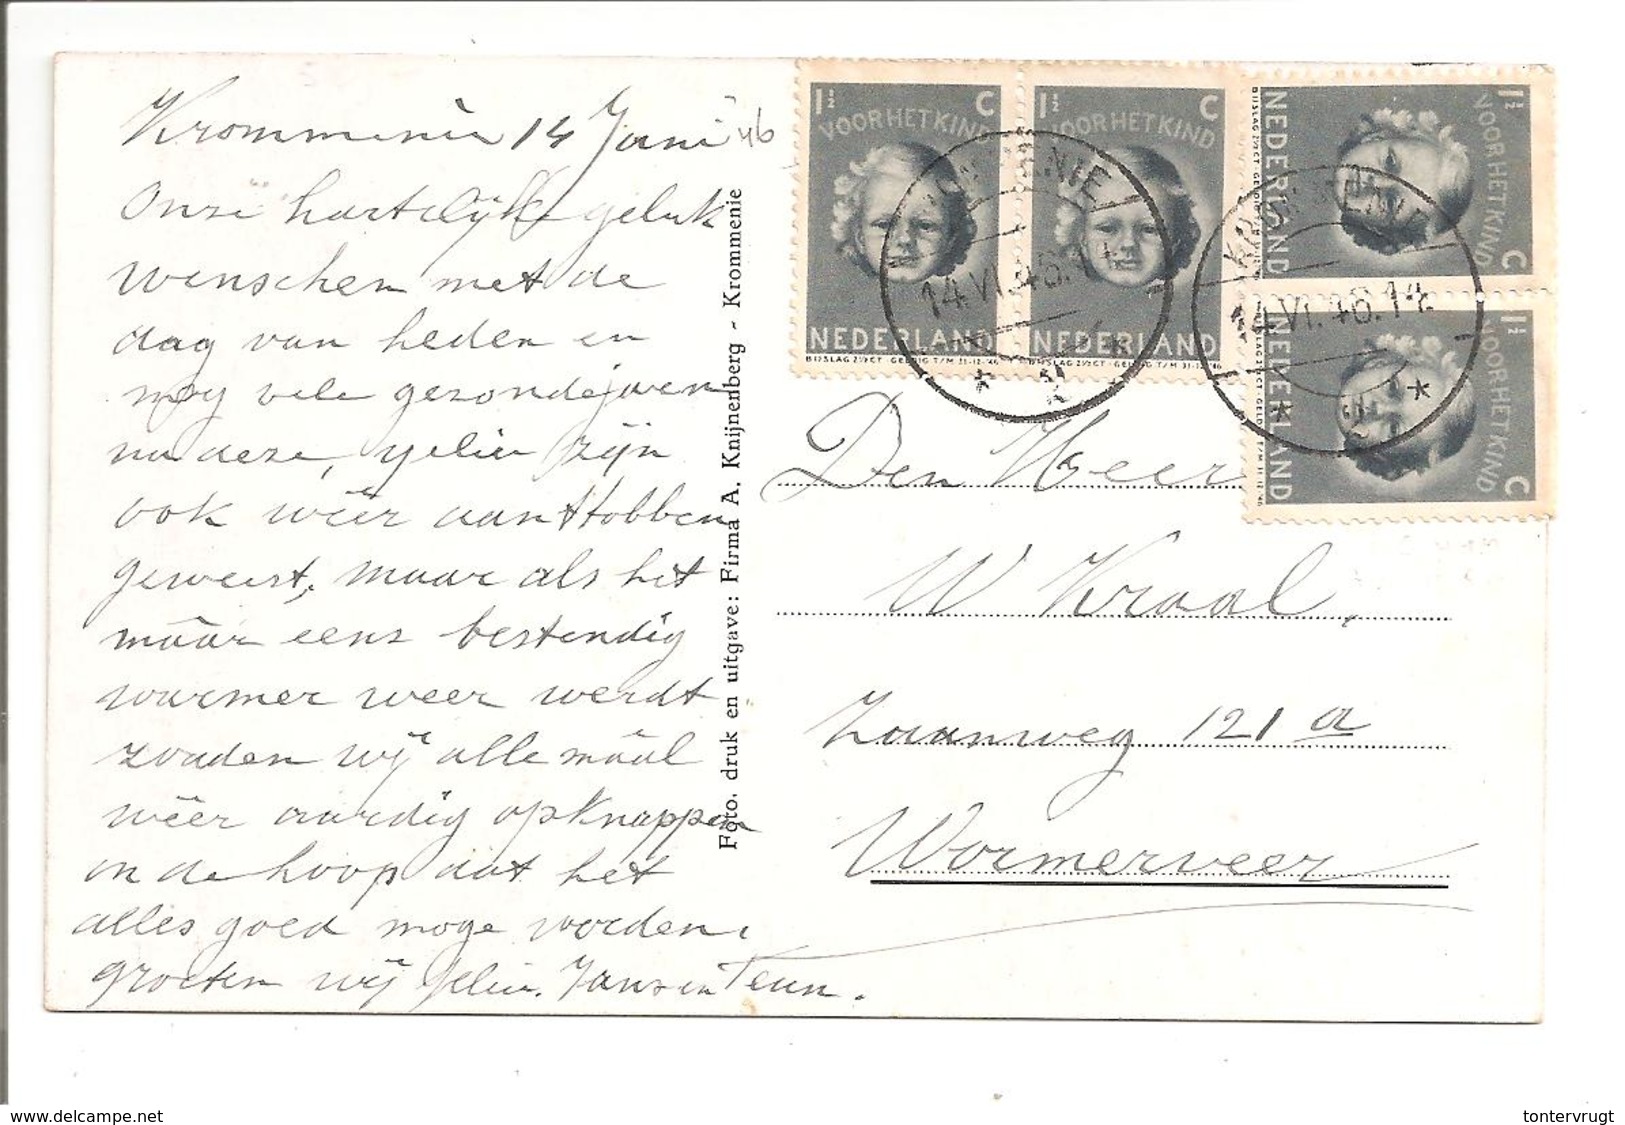 Krommenie 14 Juni '46
Onze hartelijke geluk
wenschen met de
dag van heden en
nog vele gezonde jaren
na deze, jelie zijn
ook wéér aan t tobben
geweest, maar als het
máár eens bestendig
warmer weer werdt
zouden wij alle máál
wéér aardig opknappen
in de hoop dat het
alles goed moge worden.
groeten wij jelie. Jans en Teun.
Foto. druk en uitgave: Firma A. Knijnenberg - Krommenie
1½ C
VOOR HET KIND
NEDERLAND
BIJSLAG 2½ CT - GELDIG T/M 31-12-'46
1½ C
VOOR HET KIND
NEDERLAND
BIJSLAG 2½ CT - GELDIG T/M 31-12-'46
1½ C
VOOR HET KIND
NEDERLAND
1½ C
VOOR HET KIND
NEDERLAND
KROMMENIE
14.VI.46.14
KROMMENIE
14.VI.46.14
Den Heer
W Kraal,
Zaanweg 121 a
Wormerveer
www.delcampe.net
tontervrugt